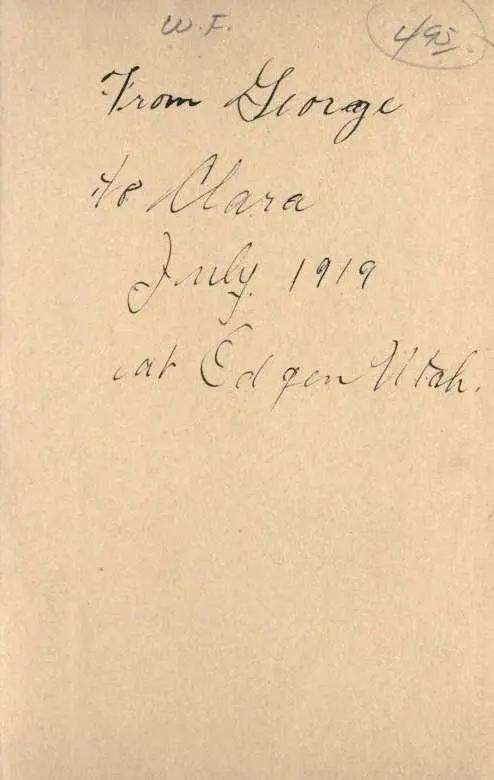 W.F.
495
From George
to Clara
July 1919
at Edgen Utah.